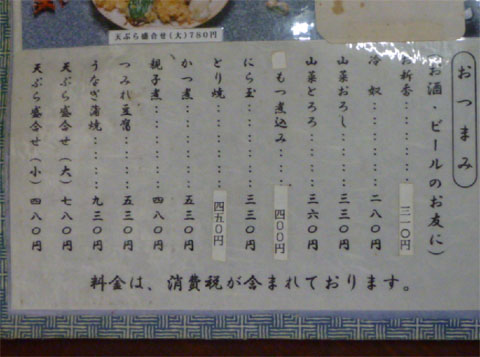 天ぷら盛合せ(大)780円
おつまみ
(お酒・ビールのお友に)
お新香……… 三一〇円
冷奴……… 二八〇円
山菜おろし……… 三三〇円
山菜とろろ……… 三六〇円
もつ煮込み……… 四〇〇円
にら玉……… 三三〇円
とり焼……… 四五〇円
かつ煮……… 五三〇円
親子煮……… 四八〇円
つみれ豆腐……… 五三〇円
うなぎ蒲焼……… 九三〇円
天ぷら盛合せ(大) 七八〇円
天ぷら盛合せ(小) 四八〇円
料金は、消費税が含まれております。